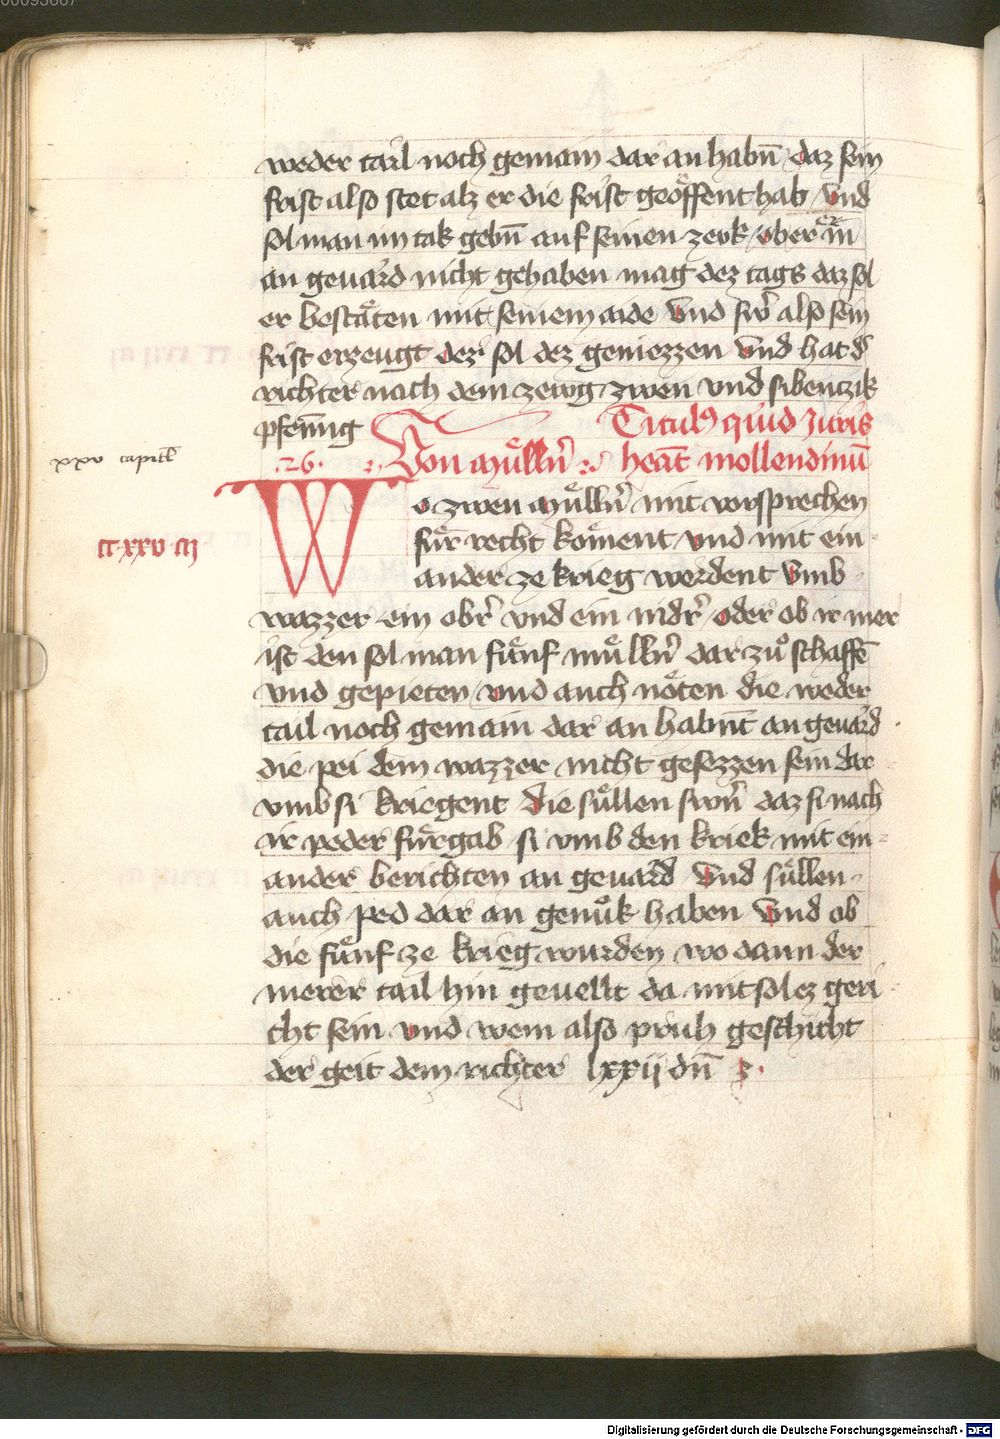 weder tail noch gemain dar an habn̄ daz sein
frist also stet alz er die frist geöffent hab und
sol man im tak gebn̄ auf seinen zeuk / ober er in
an geuard nicht gehaben mag dez tags daz sol
er bestäten mit seinem aide und swer also sein
frist erzeugt der sol dez geniezzen und hat der
richter nach dem zewg zwen und sibenczik
pfenīng Titulus quid Juris
.26. Von müllnr heāt mollendinū
xxv capitel
Wo zwen müllnr mit vorsprechen
für recht koment und mit ein
cc xxv iij
ander ze krieg werdent umb
wazzer ein obr̄ und ein nidr̄ / oder ob ir mer
ist den sol man fünf müllnr dar zu schaffē
und gepieten / und auch nöten die weder
tail noch gemain dar an habnt an geuard
die pei dem wazzer nicht gesezzen sein dar
umb si kriegent die süllen swern daz si nach
ir peder fürgab si umb den kriek mit ein
ander berichten an geuard und süllen
auch ped dar an genuk haben und ob
die fünf ze krieg wurden wo dann der
merer tail hin geuellt da mit sol ez geri
cht sein und wem also pruh geschicht
der geit dem richter lxxij dn̄
Digitalisierung gefördert durch die Deutsche Forschungsgemeinschaft - DFG